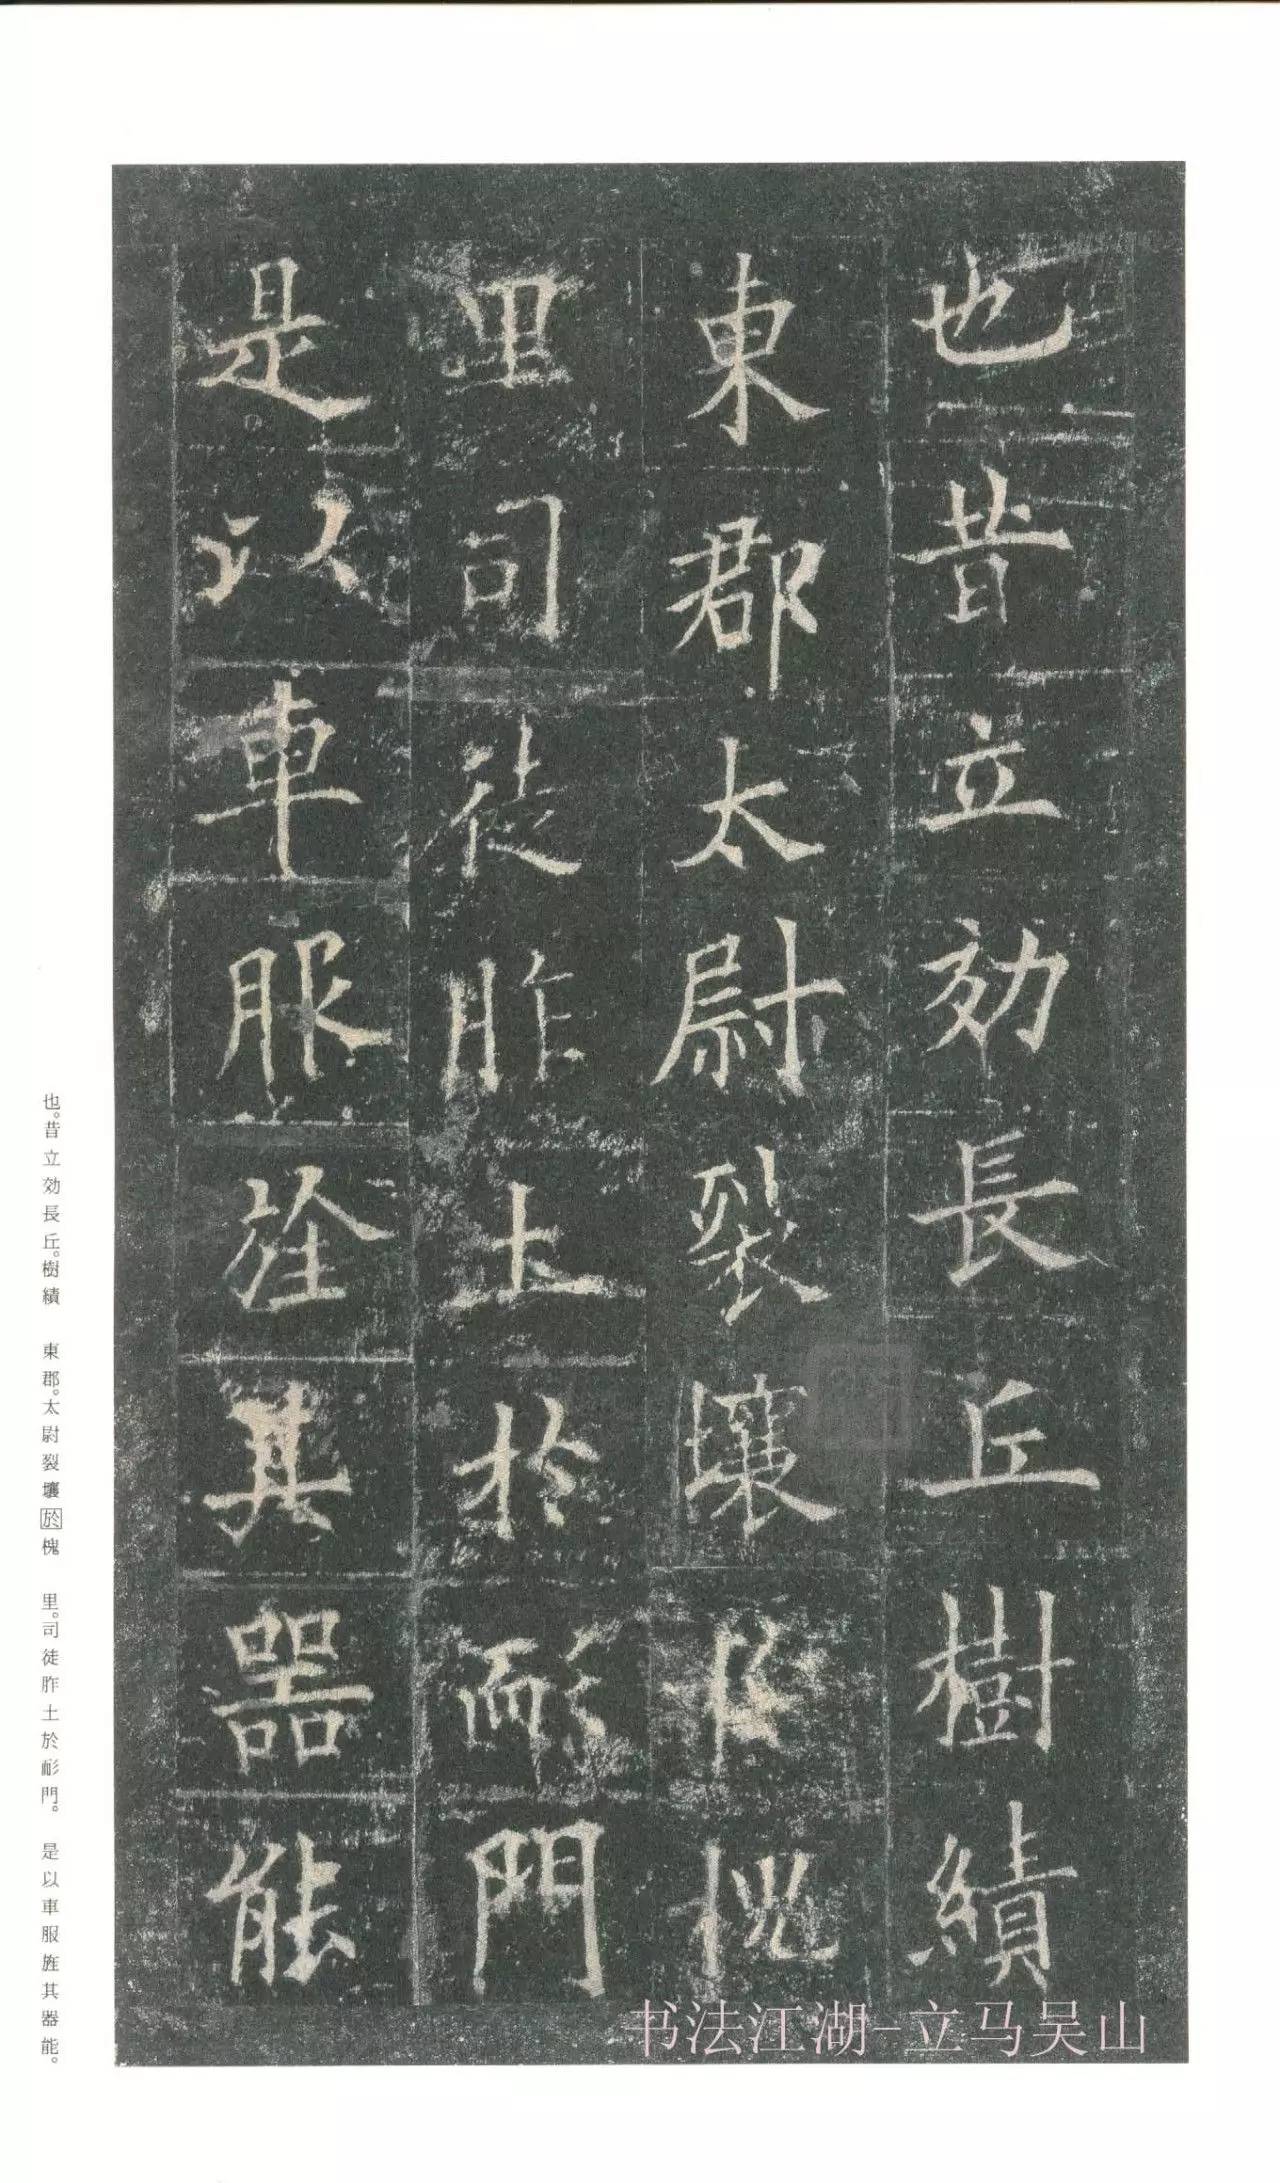 也昔立効長丘樹績
東郡太尉裂壤於槐
里司徒胙土於耏門
是以車服旌其器能
也。昔立効長丘。樹績　東郡。太尉裂壤於槐　里。司徒胙土於耏門。　是以車服旌其器能。
书法江湖-立马吴山